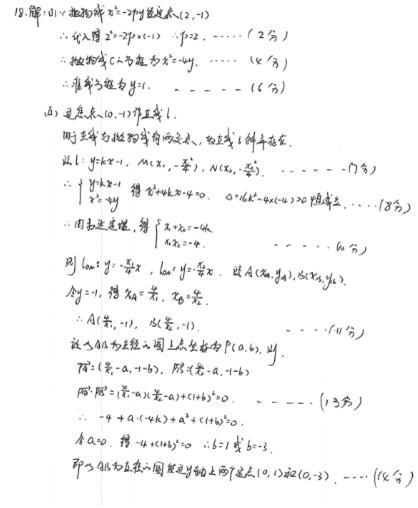 18.解:(1)∵抛物线x²=-2py经过点(2,-1)
∴代入得2²=-2p×(-1) ∴p=2. ······(2分)
∴抛物线C的方程为x²=-4y. ······(4分)
∴准线方程为y=1. - - - - - (6分)
过焦点(0,-1)作直线l.
由于直线与抛物线有两交点,故直线l斜率存在.
设l:y=kx-1, M(x₁,-x₁²/4), N(x₂,-x₂²/4). - - - - - (7分)
∴{y=kx-1 x²=-4y 得x²+4kx-4=0. Δ=16k²-4×(-4)>0恒成立. ····(8分)
∴由韦达定理,得{x₁+x₂=-4k x₁x₂=-4. - - - - - (10分)
则lOM:y=-x₁/4x, lON:y=-x₂/4x. 设A(xA,yA),B(xB,yB).
令y=-1,得xA=4/x₁, xB=4/x₂.
∴A(4/x₁,-1), B(4/x₂,-1). - - - - (11分)
设以AB为直径的圆上点坐标为P(a,b),则
PA=(4/x₁-a,-1-b), PB=(4/x₂-a,-1-b)
PA·PB=(4/x₁-a)(4/x₂-a)+(1+b)²=0. - - - - - (13分)
∴-4+a·(-4k)+a²+(1+b)²=0.
令a=0.得-4+(1+b)²=0 ∴b=1或b=-3.
即以AB为直径的圆经过y轴上两个定点(0,1)和(0,-3). ····(14分)